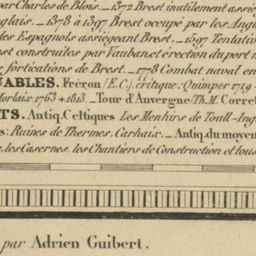 par Charles de Blois._1372 Brest inutilement assiég
glais._1378 à 1397 Brest occupé par les Ang
des Espagnols assiégeant Brest._1597 Tentativ
est construites par Vauban, et érection du port m
fortifications de Brest._1778 Combat naval en
UABLES. Fréron (E.C.), critique. Quimper 1719
Morlaix. 1763 + 1813._Tour d'Auvergne (Th. M. Corret
TS. Antiq. Celtiques Les Menhirs de Toull-Ing
Ruines de Thermes. Carhaix._Antiq. du moyen
les Casernes les Chantiers de Construction et tous
par Adrien Guibert.